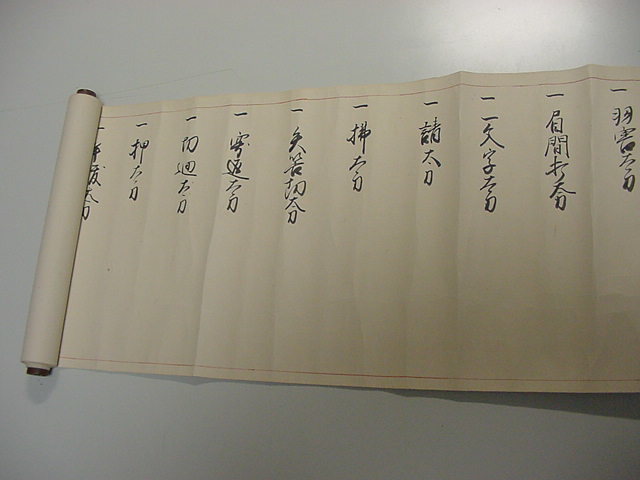 一 羽害太刀
一 眉間打太刀
一 一文字太刀
一 請太刀
一 拂太刀
一 矢筈切太刀
一 太刀
一 切廻太刀
一 押太刀
一 太刀